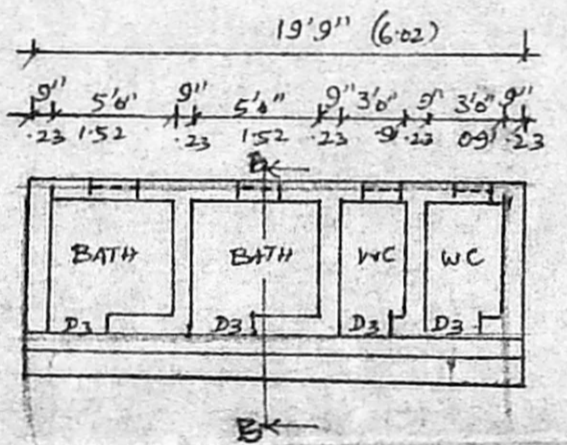 19'9" (6.02)
9" 5'0" 9" 5'0" 9" 3'0" 9" 3'0" 9"
.23 1.52 .23 1.52 .23 .9 .23 0.9 .23
B
BATH BATH WC WC
D3 D3 D3 D3
B